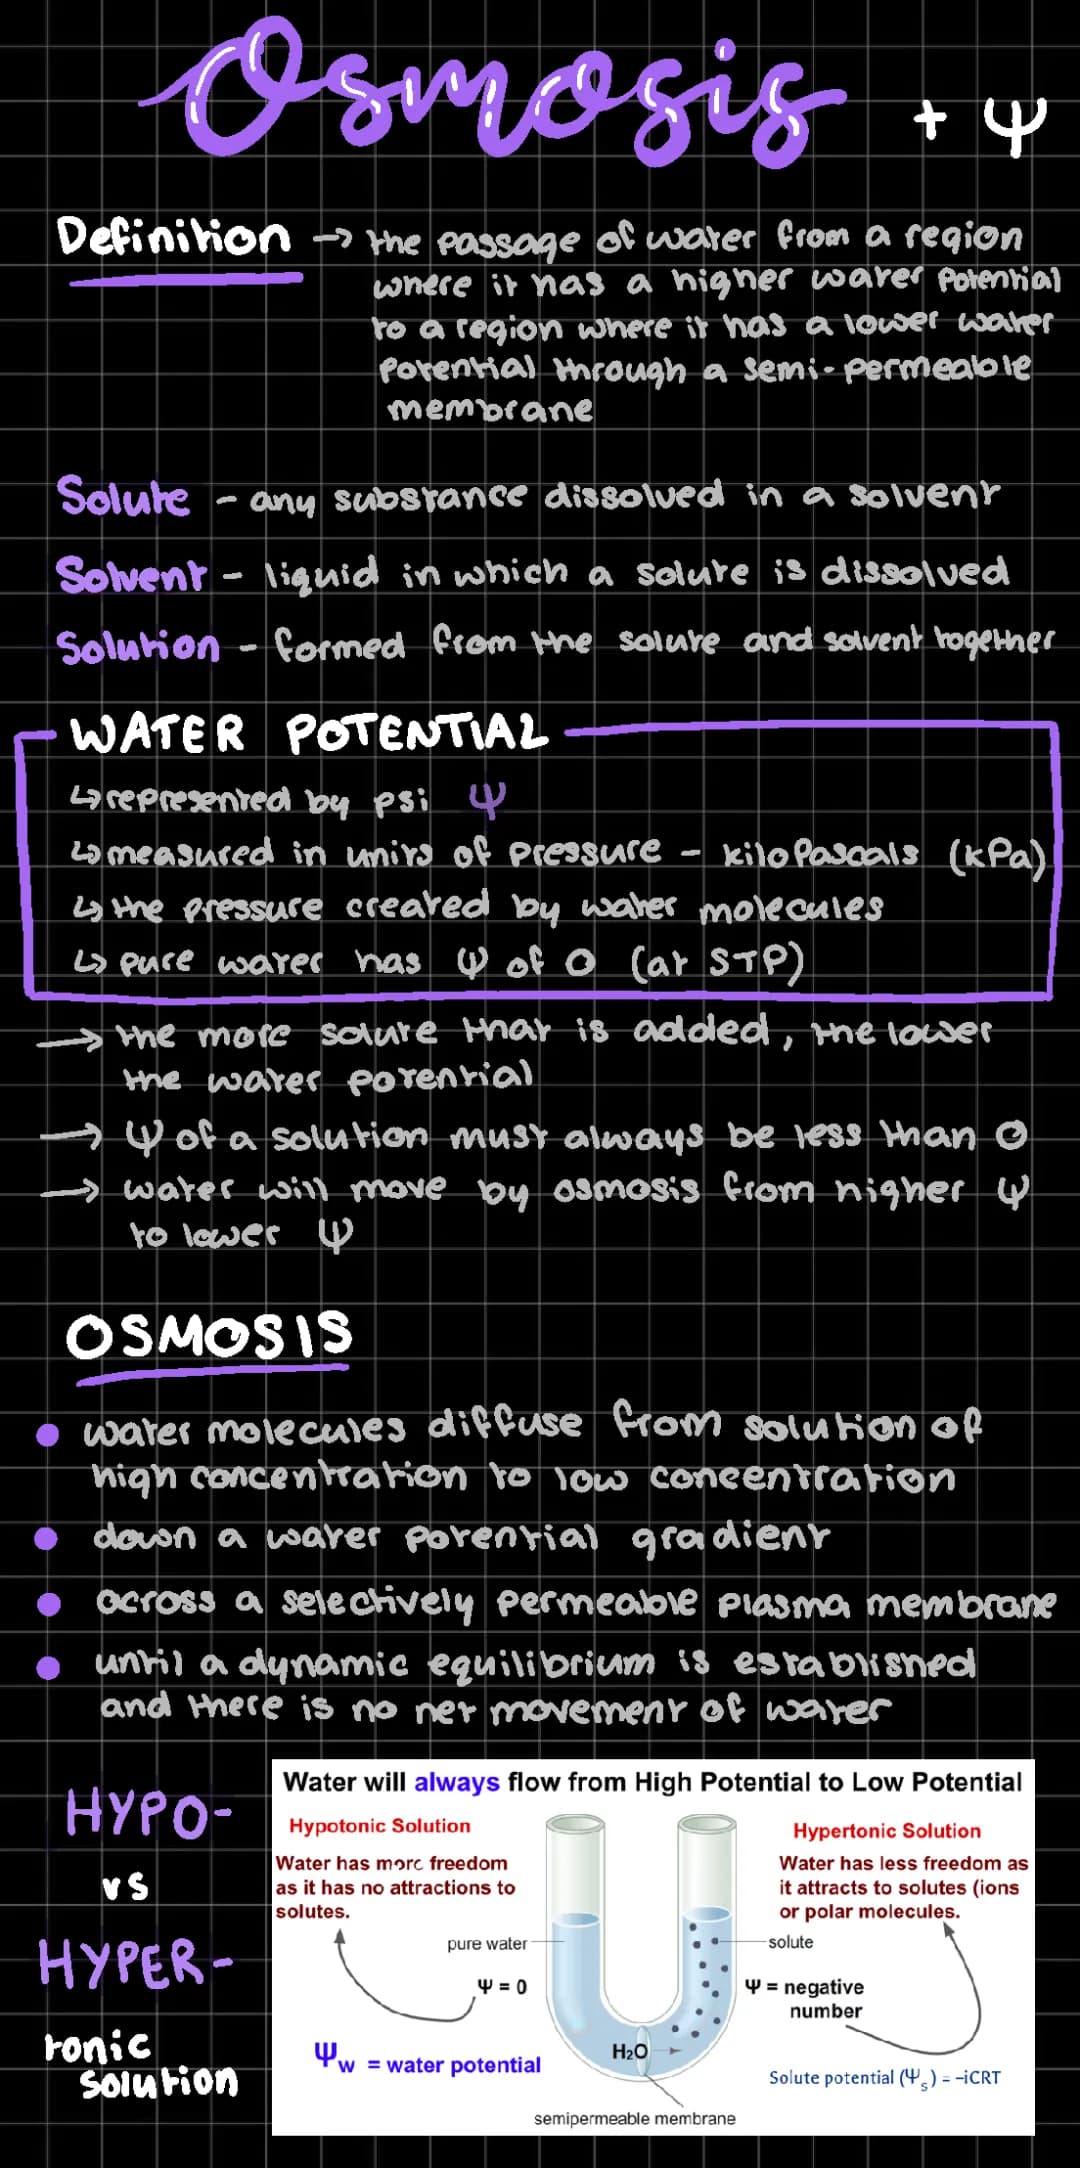 Osmosis + Ψ
Definition → the passage of water from a region
where it has a higher water potential
to a region where it has a lower water
potential through a semi-permeable
membrane
Solute - any substance dissolved in a solvent
Solvent - liquid in which a solute is dissolved
Solution - formed from the solute and solvent together
WATER POTENTIAL
↳ represented by psi Ψ
↳ measured in units of pressure - kiloPascals (kPa)
↳ the pressure created by water molecules
↳ pure water has Ψ of 0 (at STP)
→ the more solute that is added, the lower
the water potential
→ Ψ of a solution must always be less than 0
→ water will move by osmosis from higher Ψ
to lower Ψ
OSMOSIS
• water molecules diffuse from solution of
high concentration to low concentration
• down a water potential gradient
• across a selectively permeable plasma membrane
• until a dynamic equilibrium is established
and there is no net movement of water
HYPO-
vs
HYPER-
tonic
solution
Water will always flow from High Potential to Low Potential
Hypotonic Solution
Water has more freedom
as it has no attractions to
solutes.
pure water
Ψ = 0
Ψw = water potential
H₂O
semipermeable membrane
Hypertonic Solution
Water has less freedom as
it attracts to solutes (ions
or polar molecules.
solute
Ψ = negative
number
Solute potential (Ψs) = -iCRT